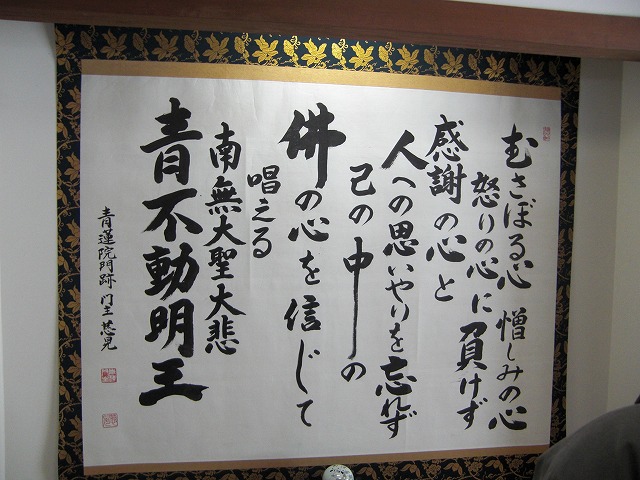 むさぼる心 憎しみの心
怒りの心に負けず
感謝の心と
人への思いやりを忘れず
己の中の
佛の心を信じて
唱える
南無大聖大悲
青不動明王
青蓮院門跡 門主 慈晃